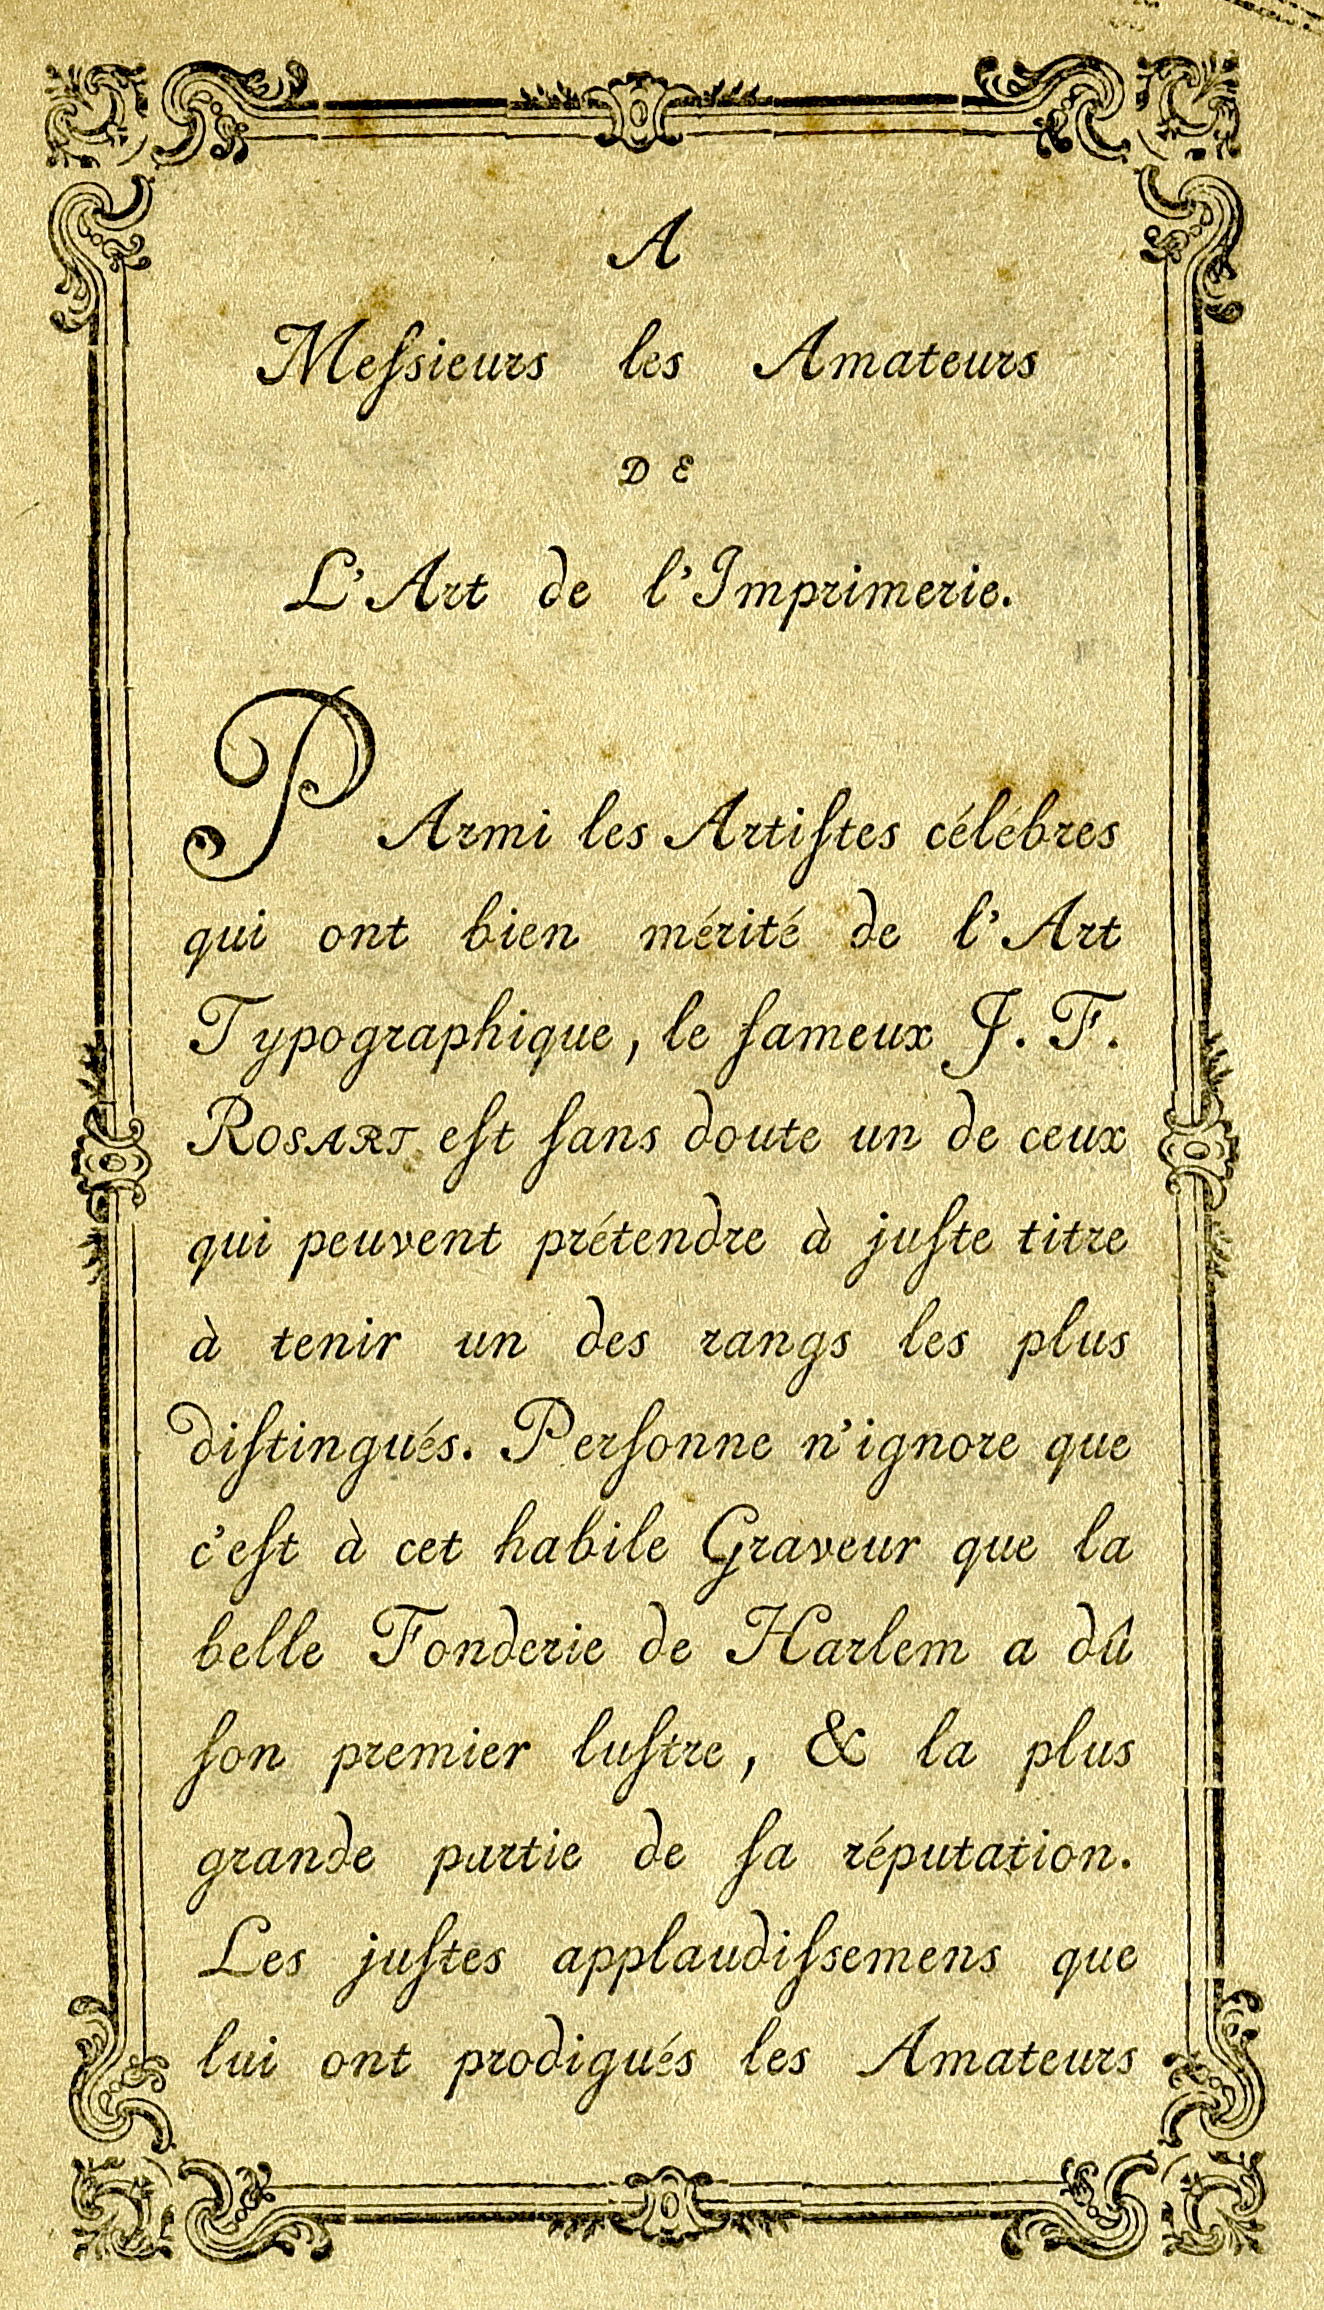 A
Meſsieurs les Amateurs
DE
L'Art de l'Imprimerie.
PArmi les Artiſtes célébres
qui ont bien mérité de l'Art
Typographique, le fameux J. F.
ROSART eſt ſans doute un de ceux
qui peuvent prétendre à juſte titre
à tenir un des rangs les plus
diſtingués. Perſonne n'ignore que
c'eſt à cet habile Graveur que la
belle Fonderie de Harlem a dû
ſon premier luſtre, & la plus
grande partie de ſa réputation.
Les juſtes applaudiſsemens que
lui ont prodigués les Amateurs